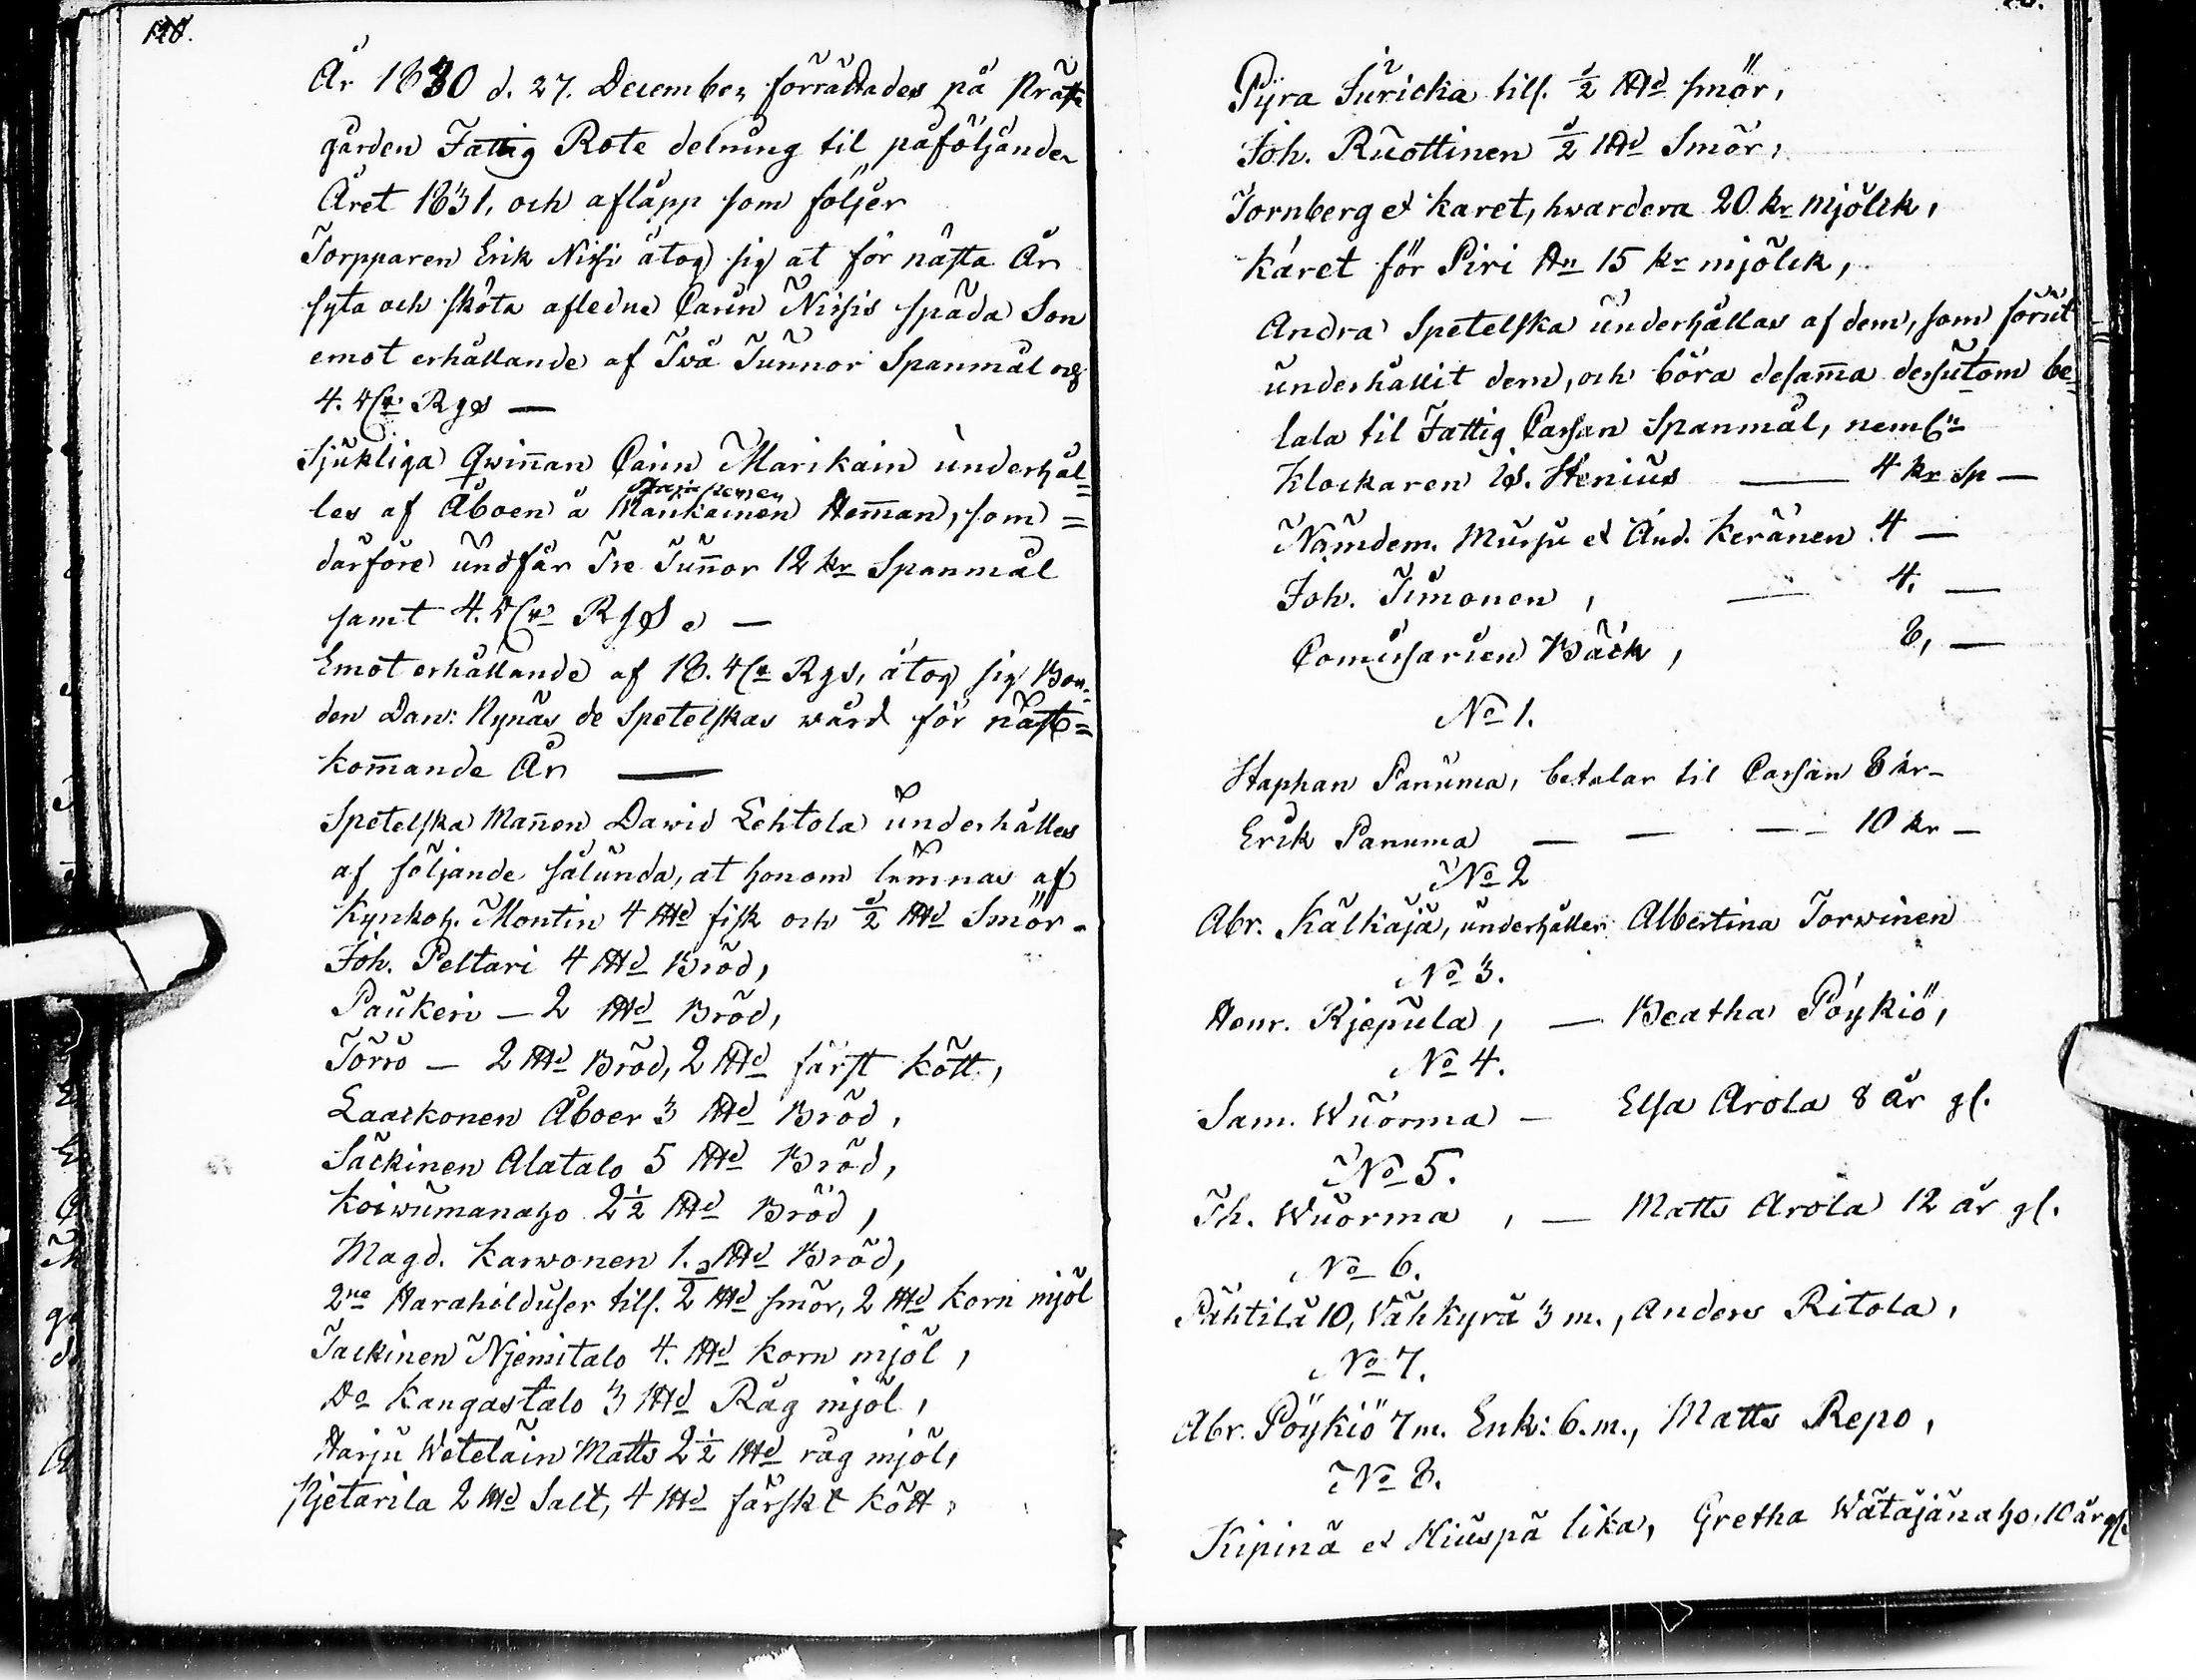 128.
År 1830 d. 27. December förrättades på Präst
gården Fattig Rote delning til påföljande
Året 1831, och aflåpp som följer
Torpparen Erik Nissi åtog sig at för nästa År
syta och sköta afledne Carin Nissis späda Son
emot erhållande af Två Tunnor Spanmål og
4. Rgs —
Sjukliga Qwinnan Carin Marikain underhål=
les af Åboen å Maukainen Heman, som =
därföre undfår Tre Tunnor 12 kr Spanmål
samt 4. Rgs —
Emot erhållande af 18. Rgs, åtog sig Bon=
den Dan: Nynäs de Spetelskas wård för näst=
kommande År —
Spetelska Mannen Dawid Lehtola underhålles
af följande sålunda, at honom lemnas af
Kynkoh. Montin 4 ℔d fisk och ½ ℔d Smör.
Joh. Peltari 4 ℔d Bröd,
Paukeri — 2 ℔d Bröd,
Törrö — 2 ℔d Bröd, 2 ℔d färst kött,
Laackonen Åboer 3 ℔d Bröd,
Säckinen Alatalo 5 ℔d Bröd,
Koiwumanaho 2½ ℔d Bröd,
Magd. Karwonen 1. ℔d Bröd,
2ne Harahilduser tills. 2 ℔d smör, 2 ℔d Korn mjöl
Jackinen Njemitalo 4. ℔d Korn mjöl,
Do Kangastalo 3 ℔d Råg mjöl,
Harju Wetelåin Matts 2½ ℔d råg mjöl,
Pjetarila 2 ℔d Salt, 4 ℔d färskt kött,
Pyra Juricka tills. ½ ℔d smör,
Joh. Ruottinen ½ ℔d Smör,
Tornberg et Karet, hwardera 20 kr mjölck,
Karet för Piri An 15 kr mjölck,
Andra Spetelska underhållas af dem, som förut
underhållit dem, och böra desamma dessutom be=
tala til Fattig Cassan Spanmål, neml:n
Klockaren Is. Stenius — 4 kr Sp —
Nämdem. Mursu et And. Keränen 4 —
Joh. Timonen, — 4. —
Comissarien Bäck, 8, —
No 1.
Staphan Panuma, betalar til Cassan 8 kr —
Erik Panuma — — — 10 kr —
No 2
Abr. Kälkäjä, underhåller Albertina Torwinen
No 3.
Henr. Rjepula, — Beatha Pöykiö,
No 4.
Sam. Wuorma — Elsa Arola 8 år gl.
No 5.
Th. Wuorma, — Matts Arola 12 år gl.
No 6.
Pähtilä 10, Vähkyrä 3 m., Anders Ritola,
No 7.
Abr. Pöykiö 7 m. Enk: 6. m., Matts Repo,
No 8.
Kipinä et Hiuspä lika, Gretha Wätäjänaho. 10 år gl.